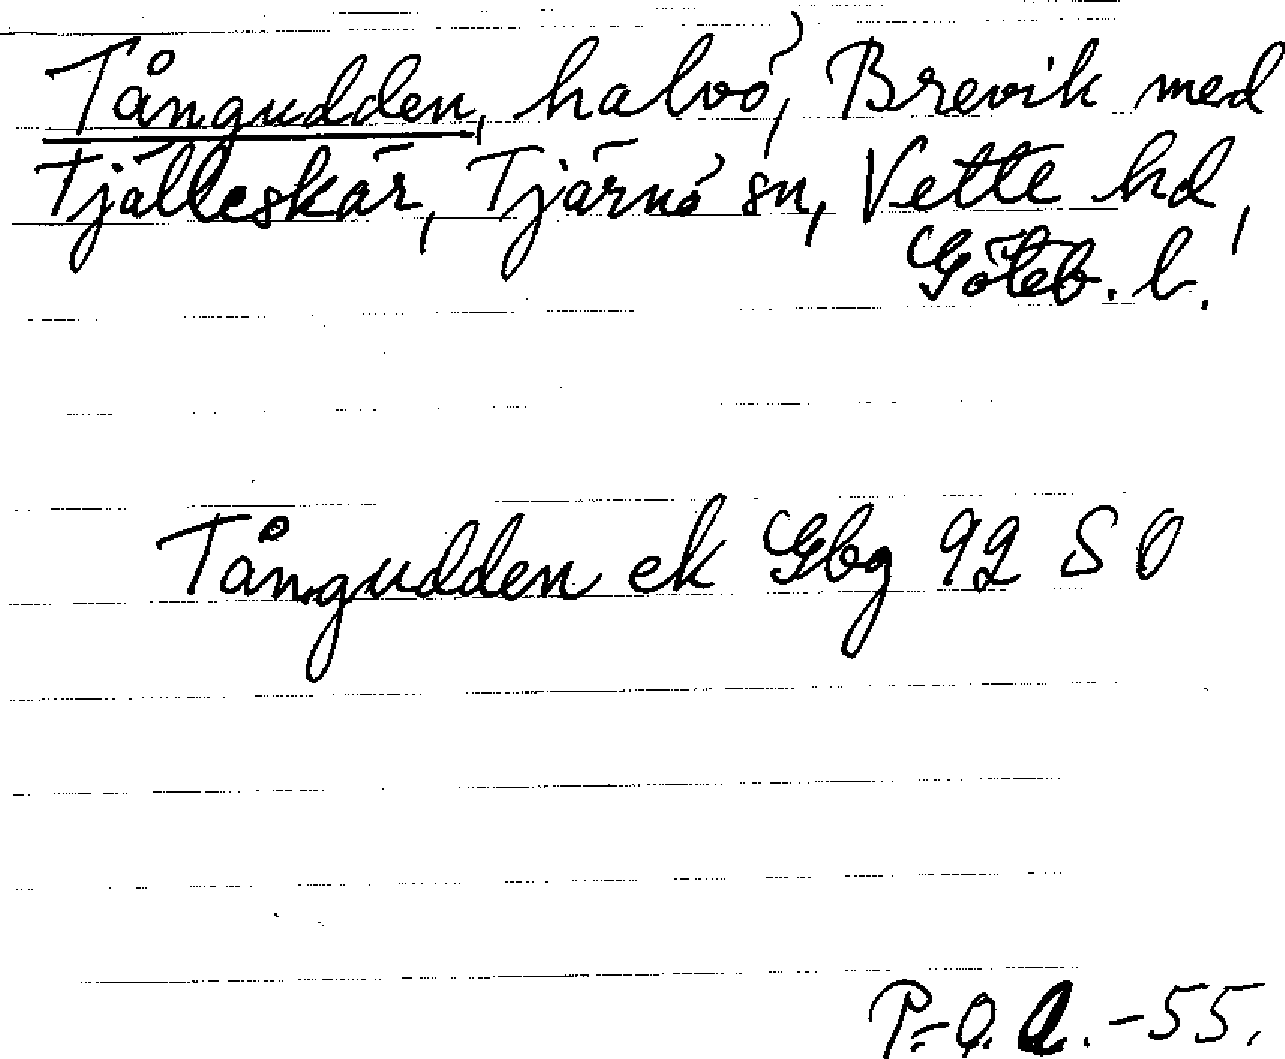 Tångudden, halvö, Brevik med
Tjälleskär, Tjärnö sn, Vette hd,
Göteb. l.
Tångudden ek Gbg 92 SO
P.-O. -55.